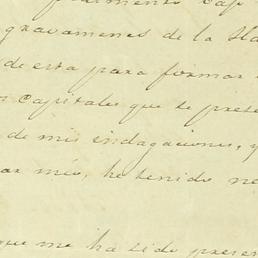 gravamenes de la Ha
de esta para formar
Capitales que se prese
de mis indagaciones, y
mio, he tenido ne
que me ha sido presen